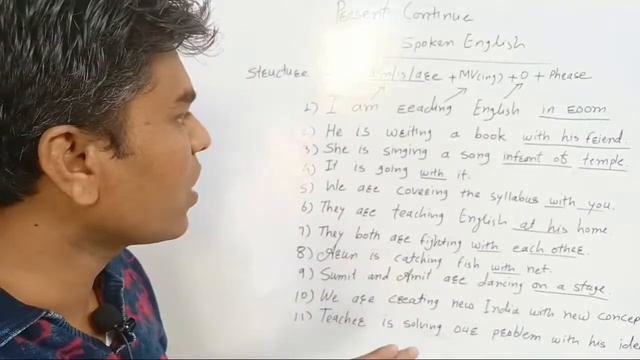 Present Continue
Spoken English
Structure is/are + MV(ing) + O + Phrase
1) I am reading English in room
2) He is writing a book with his friend.
3) She is singing a song infront of temple.
4) It is going with it.
5) We are covering the syllabus with you.
6) They are teaching English at his home
7) They both are fighting with each other.
8) Arun is catching fish with net.
9) Sumit and Amit are dancing on a stage.
10) We are creating new India with new concep
11) Teacher is solving our problem with his ide